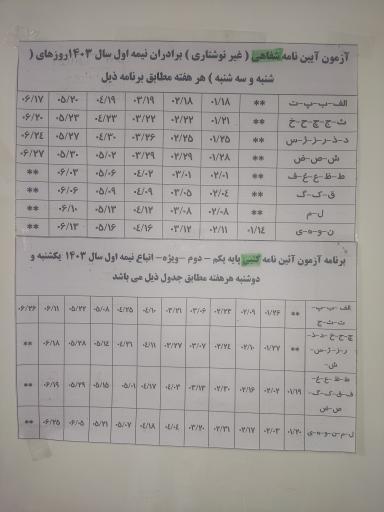 آزمون آیین نامه شفاهی ( غیر نوشتاری ) برادران نیمه اول سال ۱۴۰۳ روزهای (
شنبه و سه شنبه ) هر هفته مطابق برنامه ذیل
الف-ب-پ-ت ** ۰۱/۱۸ ۰۲/۱۸ ۰۳/۱۹ ۰۴/۱۹ ۰۵/۲۰ ۰۶/۱۷
ث-ج-چ-ح-خ ** ۰۱/۲۱ ۰۲/۲۲ ۰۳/۲۲ ۰۴/۲۳ ۰۵/۲۳ ۰۶/۲۰
د-ذ-ر-ز-ژ-س ** ۰۱/۲۵ ۰۲/۲۵ ۰۳/۲۶ ۰۴/۳۰ ۰۵/۲۷ ۰۶/۲۴
ش-ص-ض ** ۰۱/۲۸ ۰۲/۲۹ ۰۳/۲۹ ۰۵/۰۲ ۰۵/۳۰ ۰۶/۲۷
ط-ظ-ع-غ-ف ** ۰۲/۰۱ ۰۳/۰۱ ۰۴/۰۲ ۰۵/۰۶ ۰۶/۰۳ **
ق-ک-گ ** ۰۲/۰۴ ۰۳/۰۵ ۰۴/۰۹ ۰۵/۰۹ ۰۶/۰۶ **
ل-م ** ۰۲/۰۸ ۰۳/۰۸ ۰۴/۱۲ ۰۵/۱۳ ۰۶/۱۰ **
ن-و-ه-ی ۰۱/۱۴ ۰۲/۱۱ ۰۳/۱۲ ۰۴/۱۶ ۰۵/۱۶ ۰۶/۱۳ **
برنامه آزمون آئین نامه کتبی پایه یکم - دوم - ویژه - اتباع نیمه اول سال ۱۴۰۳ یکشنبه و
دوشنبه هر هفته مطابق جدول ذیل می باشد
الف-ب-پ-
ت-ث-ج ** ۰۱/۲۶ ۰۲/۰۹ ۰۲/۲۳ ۰۳/۰۶ ۰۳/۲۱ ۰۴/۱۰ ۰۴/۲۵ ۰۵/۰۸ ۰۵/۲۲ ۰۶/۱۱ ۰۶/۲۶
چ-ح-خ-د-ذ-
ر-ز-ژ-س-
ش- ** ۰۱/۲۷ ۰۲/۱۰ ۰۲/۲۴ ۰۳/۰۷ ۰۳/۲۷ ۰۴/۱۱ ۰۴/۳۱ ۰۵/۱۴ ۰۵/۲۸ ۰۶/۱۸ **
ط-ظ-ع-غ-
ف-ق-ک-گ-
ص-ض ۰۱/۱۹ ۰۲/۰۲ ۰۲/۱۶ ۰۲/۳۰ ۰۳/۱۳ ۰۴/۰۳ ۰۴/۱۷ ۰۵/۰۱ ۰۵/۱۵ ۰۵/۲۹ ۰۶/۱۹ **
ل-م-ن-و-ه-ی ۰۱/۲۰ ۰۲/۰۳ ۰۲/۱۷ ۰۲/۳۱ ۰۳/۲۰ ۰۴/۰۴ ۰۴/۱۸ ۰۵/۰۷ ۰۵/۲۱ ۰۶/۰۵ ۰۶/۲۵ **